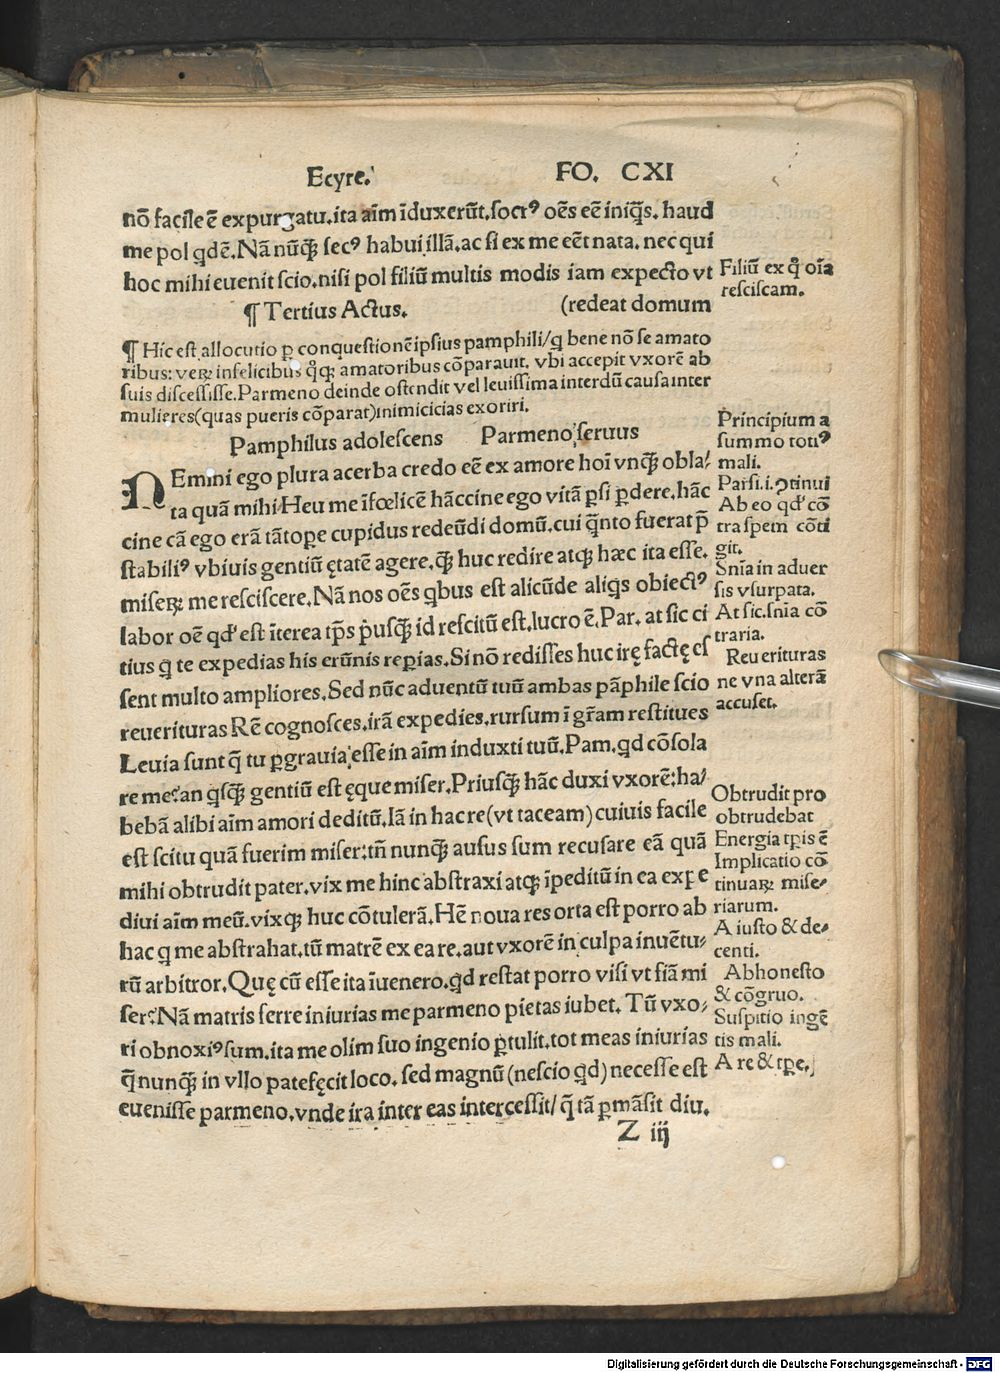 Ecyre. FO. CXI
nō facile ē expurgatu. ita aīm īduxerūt. socrꝰ oēs eē iniq̄s. haud
me pol qdē. Nā nūq̄ꝫ secꝰ habui illā. ac si ex me eēt nata. nec qui
hoc mihi euenit scio. nisi pol filiū multis modis iam expecto vt
Filiū ex q̊ oīa
resciscam.
¶ Tertius Actus. (redeat domum
¶ Hic est allocutio ꝑ conquestionē ipsius pamphili/ q bene nō se amato
ribus: verꝝ infelicibus q̊qꝫ amatoribus cōparauit. vbi accepit vxorē ab
suis discessisse. Parmeno deinde ostendit vel leuissima interdū causa inter
mulieres (quas pueris cōparat) inimicicias exoriri.
Pamphilus adolescens Parmeno seruus
NEmini ego plura acerba credo eē ex amore hoī vnq̄ꝫ obla/
ta quā mihi Heu me īfœlicē hāccine ego vitā ꝑsi ꝑdere, hāc
cine cā ego erā tātoꝑe cupidus redeūdi domū, cui q̄nto fuerat p̄
stabiliꝰ vbiuis gentiū ętatē agere, q̄ꝫ huc redire atqꝫ hæc ita esse.
miserꝝ me resciscere. Nā nos oēs qbus est alicūde aliqs obiectꝰ
labor oē qd' est īterea tp̄s p̓usq̄ꝫ id rescitū est. lucro ē. Par. at sic ci
tius q te expedias his erūnis reꝑias. Si nō redisses huc irę factę es
sent multo ampliores. Sed nūc aduentū tuū ambas pāphile scio
reuerituras Rē cognosces. irā expedies. rursum ī gr̄am restitues
Leuia sunt q̄ tu ꝑgrauia esse in aīm induxti tuū. Pam. qd cōsola
re me? an qsq̄ꝫ gentiū est ęque miser. Priusq̄ꝫ hāc duxi vxorē: ha/
bebā alibi aīm amori deditū. Iā in hac re (vt taceam) cuiuis facile
est scitu quā fuerim miser: tn̄ nunq̄ꝫ ausus sum recusare eā quā
mihi obtrudit pater. vix me hinc abstraxi atqꝫ īpeditū in ea expe
diui aīm meū. vixqꝫ huc cōtulerā. Hē noua res orta est porro ab
hac q me abstrahat. tū matrē ex ea re. aut vxorē in culpa inuētu/
rū arbitror. Quę cū esse ita īuenero. qd restat porro visi vt fiā mi
ser? Nā matris ferre iniurias me parmeno pietas iubet. Tū vxo/
ri obnoxiꝰ sum. ita me olim suo ingenio ꝑtulit. tot meas iniurias
q̄ nunq̄ꝫ in vllo patefęcit loco. sed magnū (nescio qd) necesse est
euenisse parmeno. vnde ira inter eas intercessit/ q̄ tā ꝑmāsit diu.
Z iij
Principium a
summo totiꝰ
mali.
Parsi. i. ꝯtinui
Ab eo qd' cō
tra spem cōti
git.
Snīa in aduer
sis vsurpata.
At sic. snīa cō
traria.
Reuerituras
ne vna alterā
accuset.
Obtrudit pro
obtrudebat
Energia tꝑis ē
Implicatio cō
tinuaꝝ mise-
riarum.
A iusto & de-
centi.
Ab honesto
& cōgruo.
Suspitio ingē
tis mali.
A re & tꝑe.
Digitalisierung gefördert durch die Deutsche Forschungsgemeinschaft - DFG